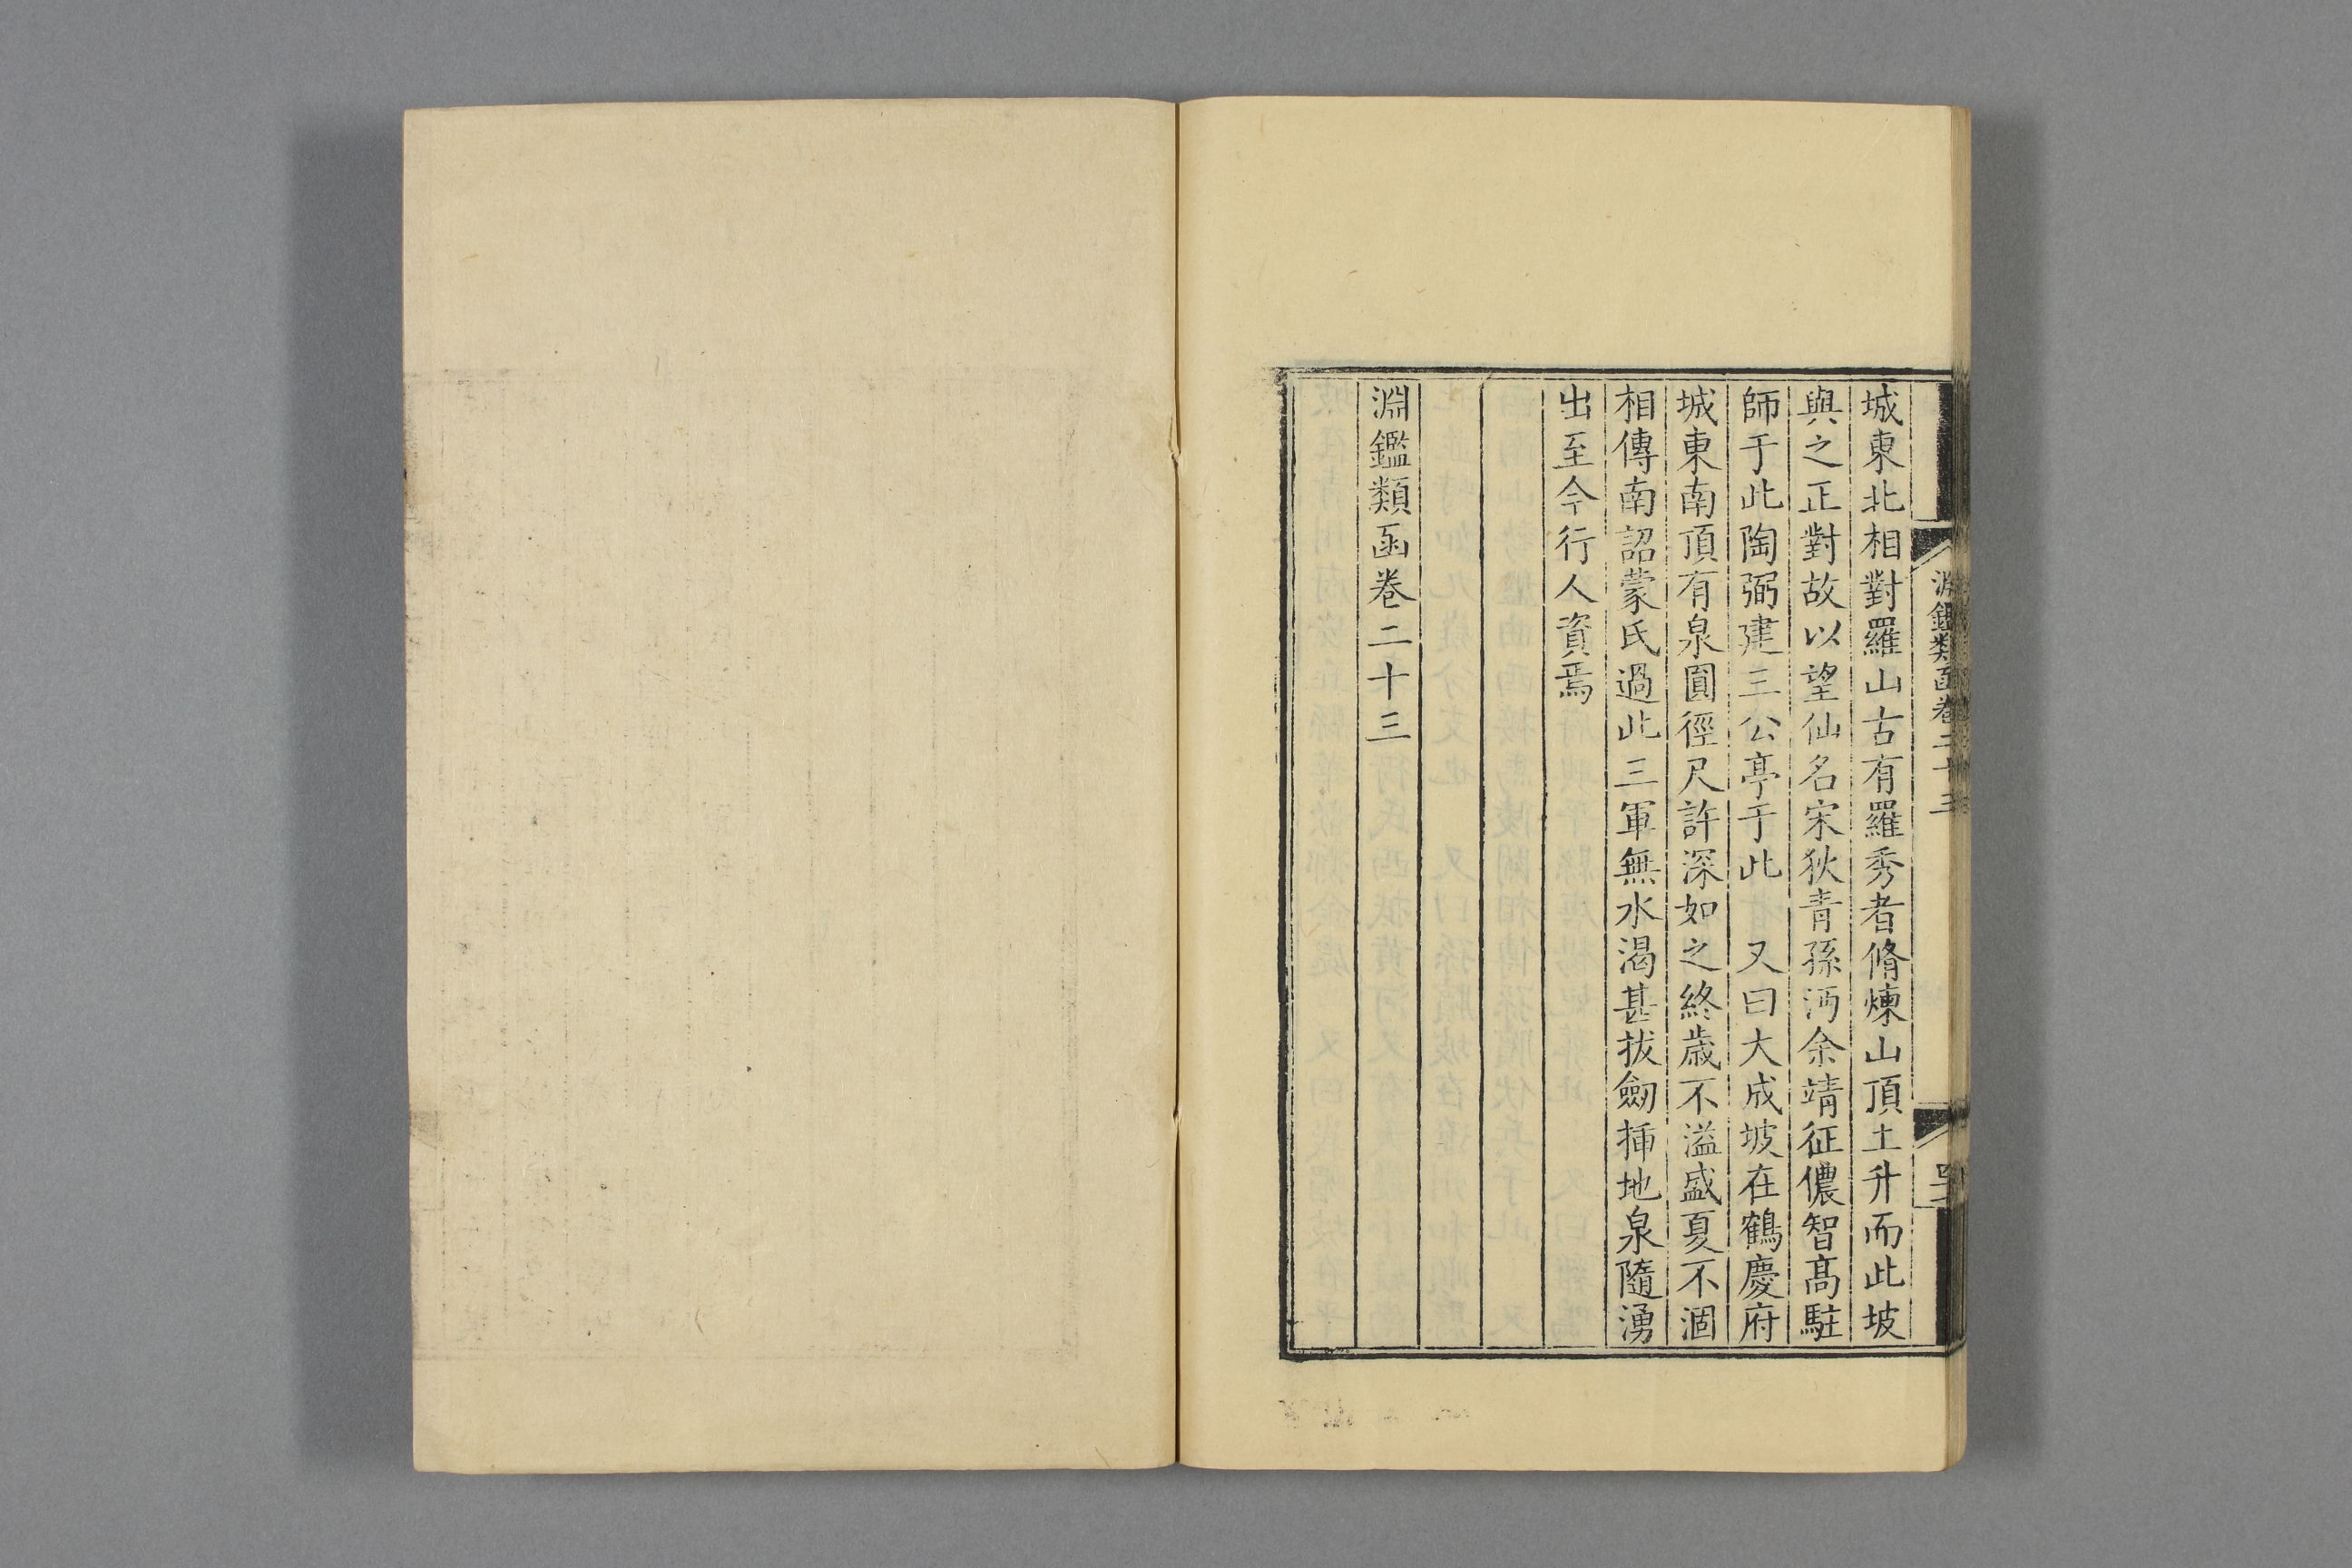 城東北相對羅山古有羅秀者脩煉山頂土升而此坡
與之正對故以望仙名宋狄青孫沔余靖征儂智高駐
師于此陶弼建三公亭于此　又曰大成坡在鶴慶府
城東南頂有泉圓徑尺許深如之終歲不溢盛夏不涸
相傳南詔蒙氏過此三軍無水渴甚拔劒揷地泉隨湧
出至今行人資焉
淵鑑類函卷二十三
淵鑑類函卷二十三